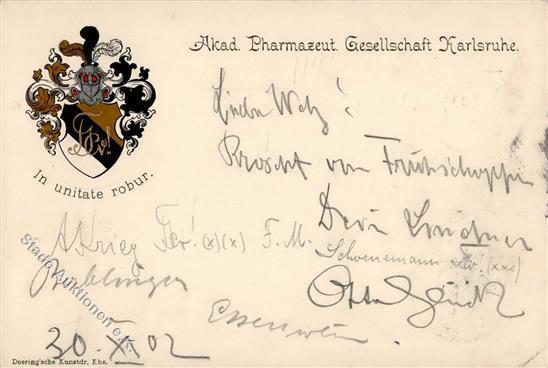 Akad. Pharmazeut. Gesellschaft Karlsruhe.
In unitate robur.
Liebe Welz!
Prosit vom Frühschoppen
Dein Lindner
A Krieg Xbr. (x)(x) F. M.
Schoenemann xbr. (xxx)
Böblinger
Otto
Essenwein
20. XI 02
Stade Auktionen e.
Doering'sche Kunstdr. Khe.